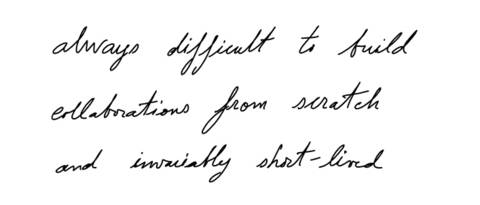 always difficult to build
collaborations from scratch
and invariably short-lived